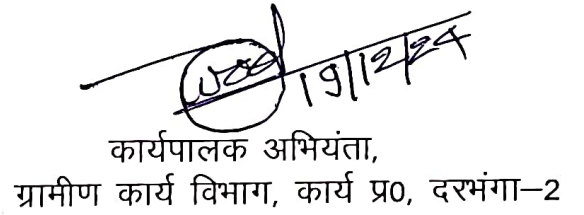 19/12/24
कार्यपालक अभियंता,
ग्रामीण कार्य विभाग, कार्य प्र0, दरभंगा–2